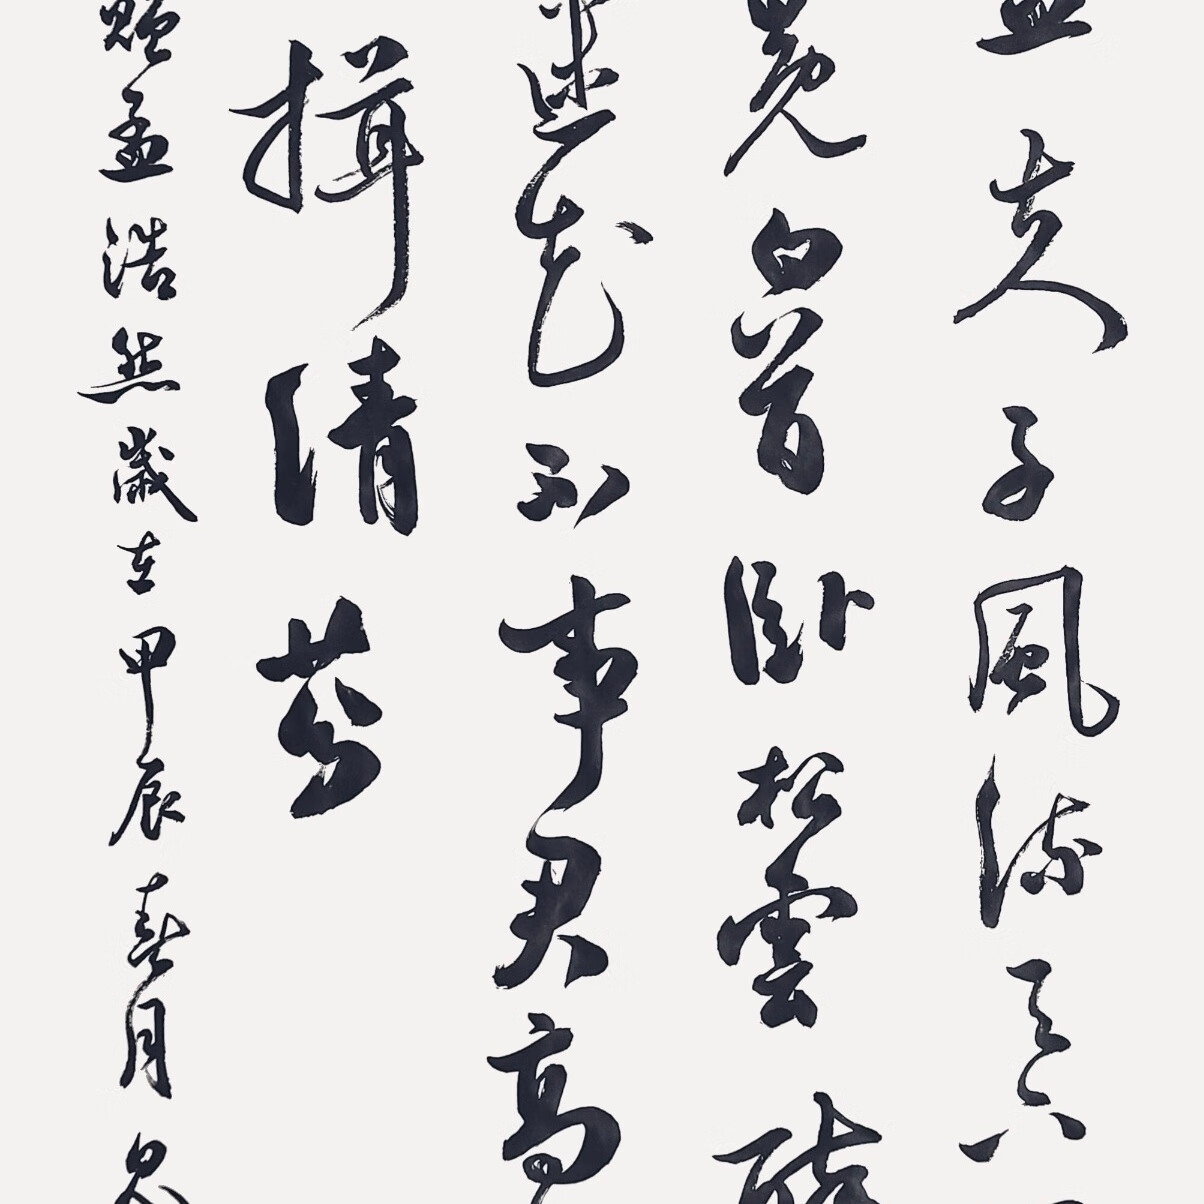 夫子風流天下
冕白首卧松雲
迷花不事君高
揖清芬
贈孟浩然歲在甲辰春月